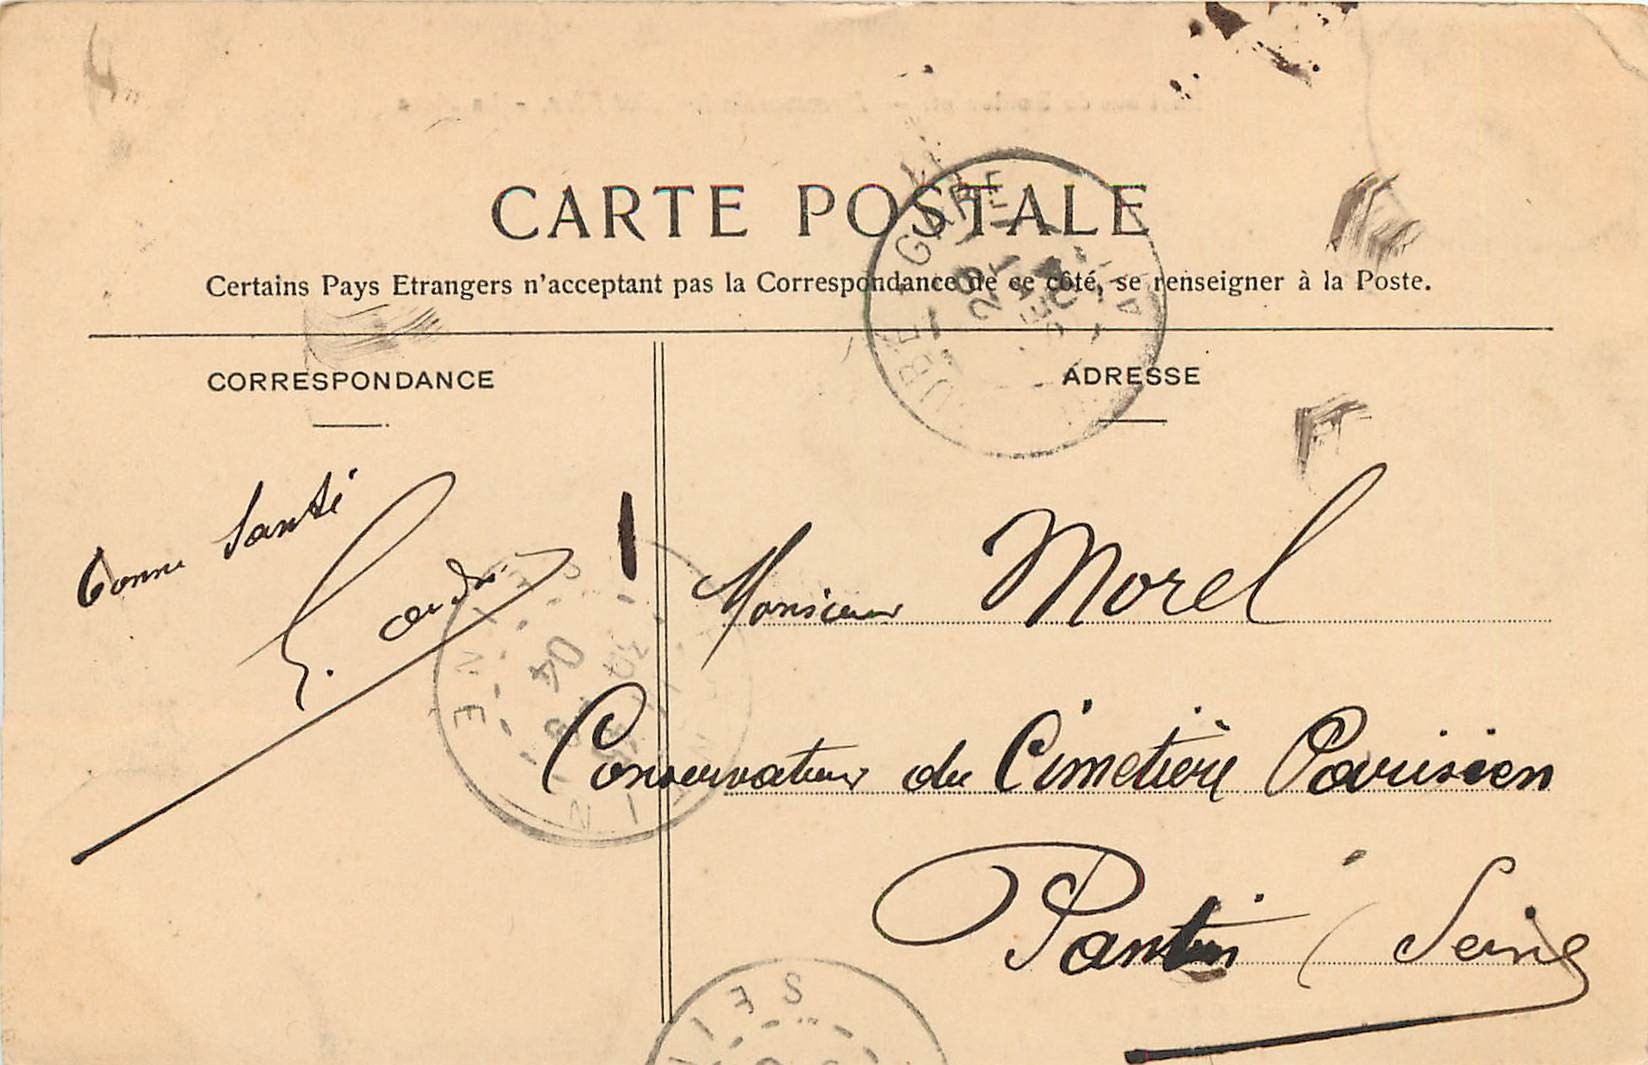 CARTE POSTALE
Certains Pays Etrangers n'acceptant pas la Correspondance de ce côté, se renseigner à la Poste.
CORRESPONDANCE
ADRESSE
GARE
28
04
SEINE
Bonne Santé
Monsieur Morel
Conservateur du Cimetière Parisien
Pantin (Seine
SEIN